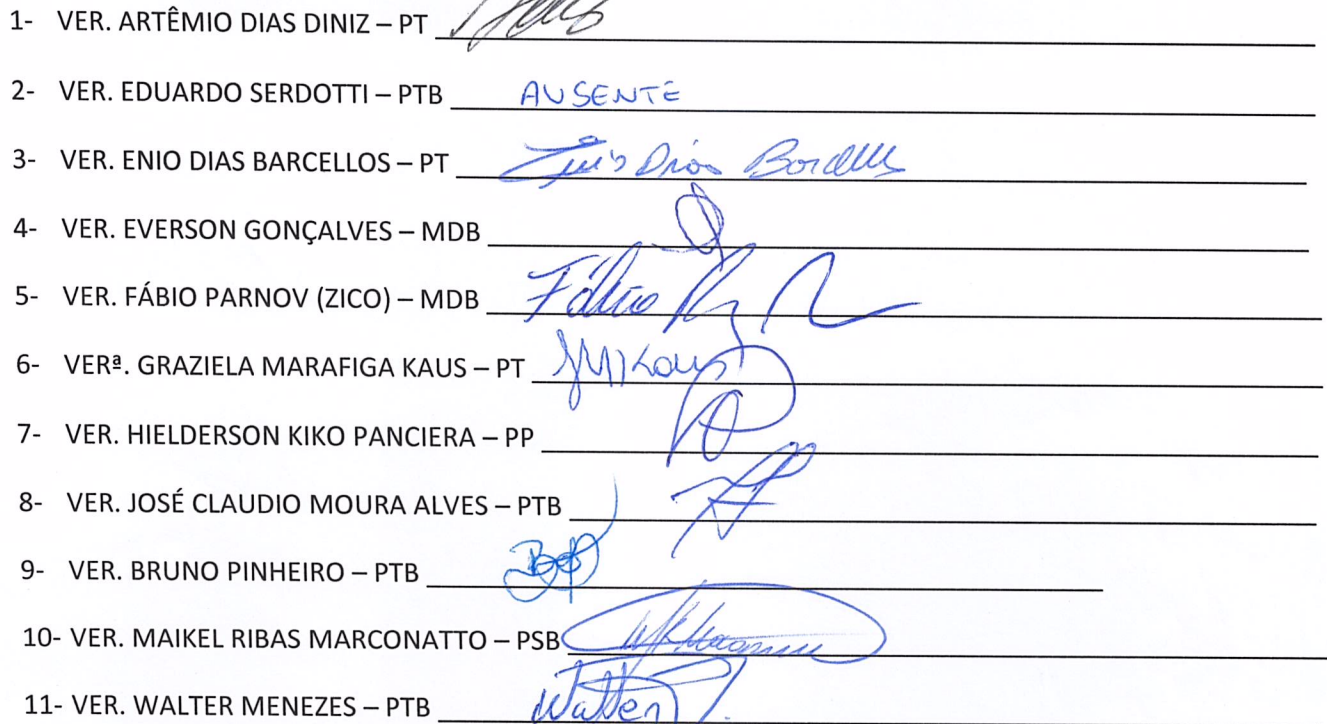 1- VER. ARTÊMIO DIAS DINIZ – PT
2- VER. EDUARDO SERDOTTI – PTB AUSENTE
3- VER. ENIO DIAS BARCELLOS – PT
4- VER. EVERSON GONÇALVES – MDB
5- VER. FÁBIO PARNOV (ZICO) – MDB
6- VERª. GRAZIELA MARAFIGA KAUS – PT
7- VER. HIELDERSON KIKO PANCIERA – PP
8- VER. JOSÉ CLAUDIO MOURA ALVES – PTB
9- VER. BRUNO PINHEIRO – PTB
10- VER. MAIKEL RIBAS MARCONATTO – PSB
11- VER. WALTER MENEZES – PTB Walter